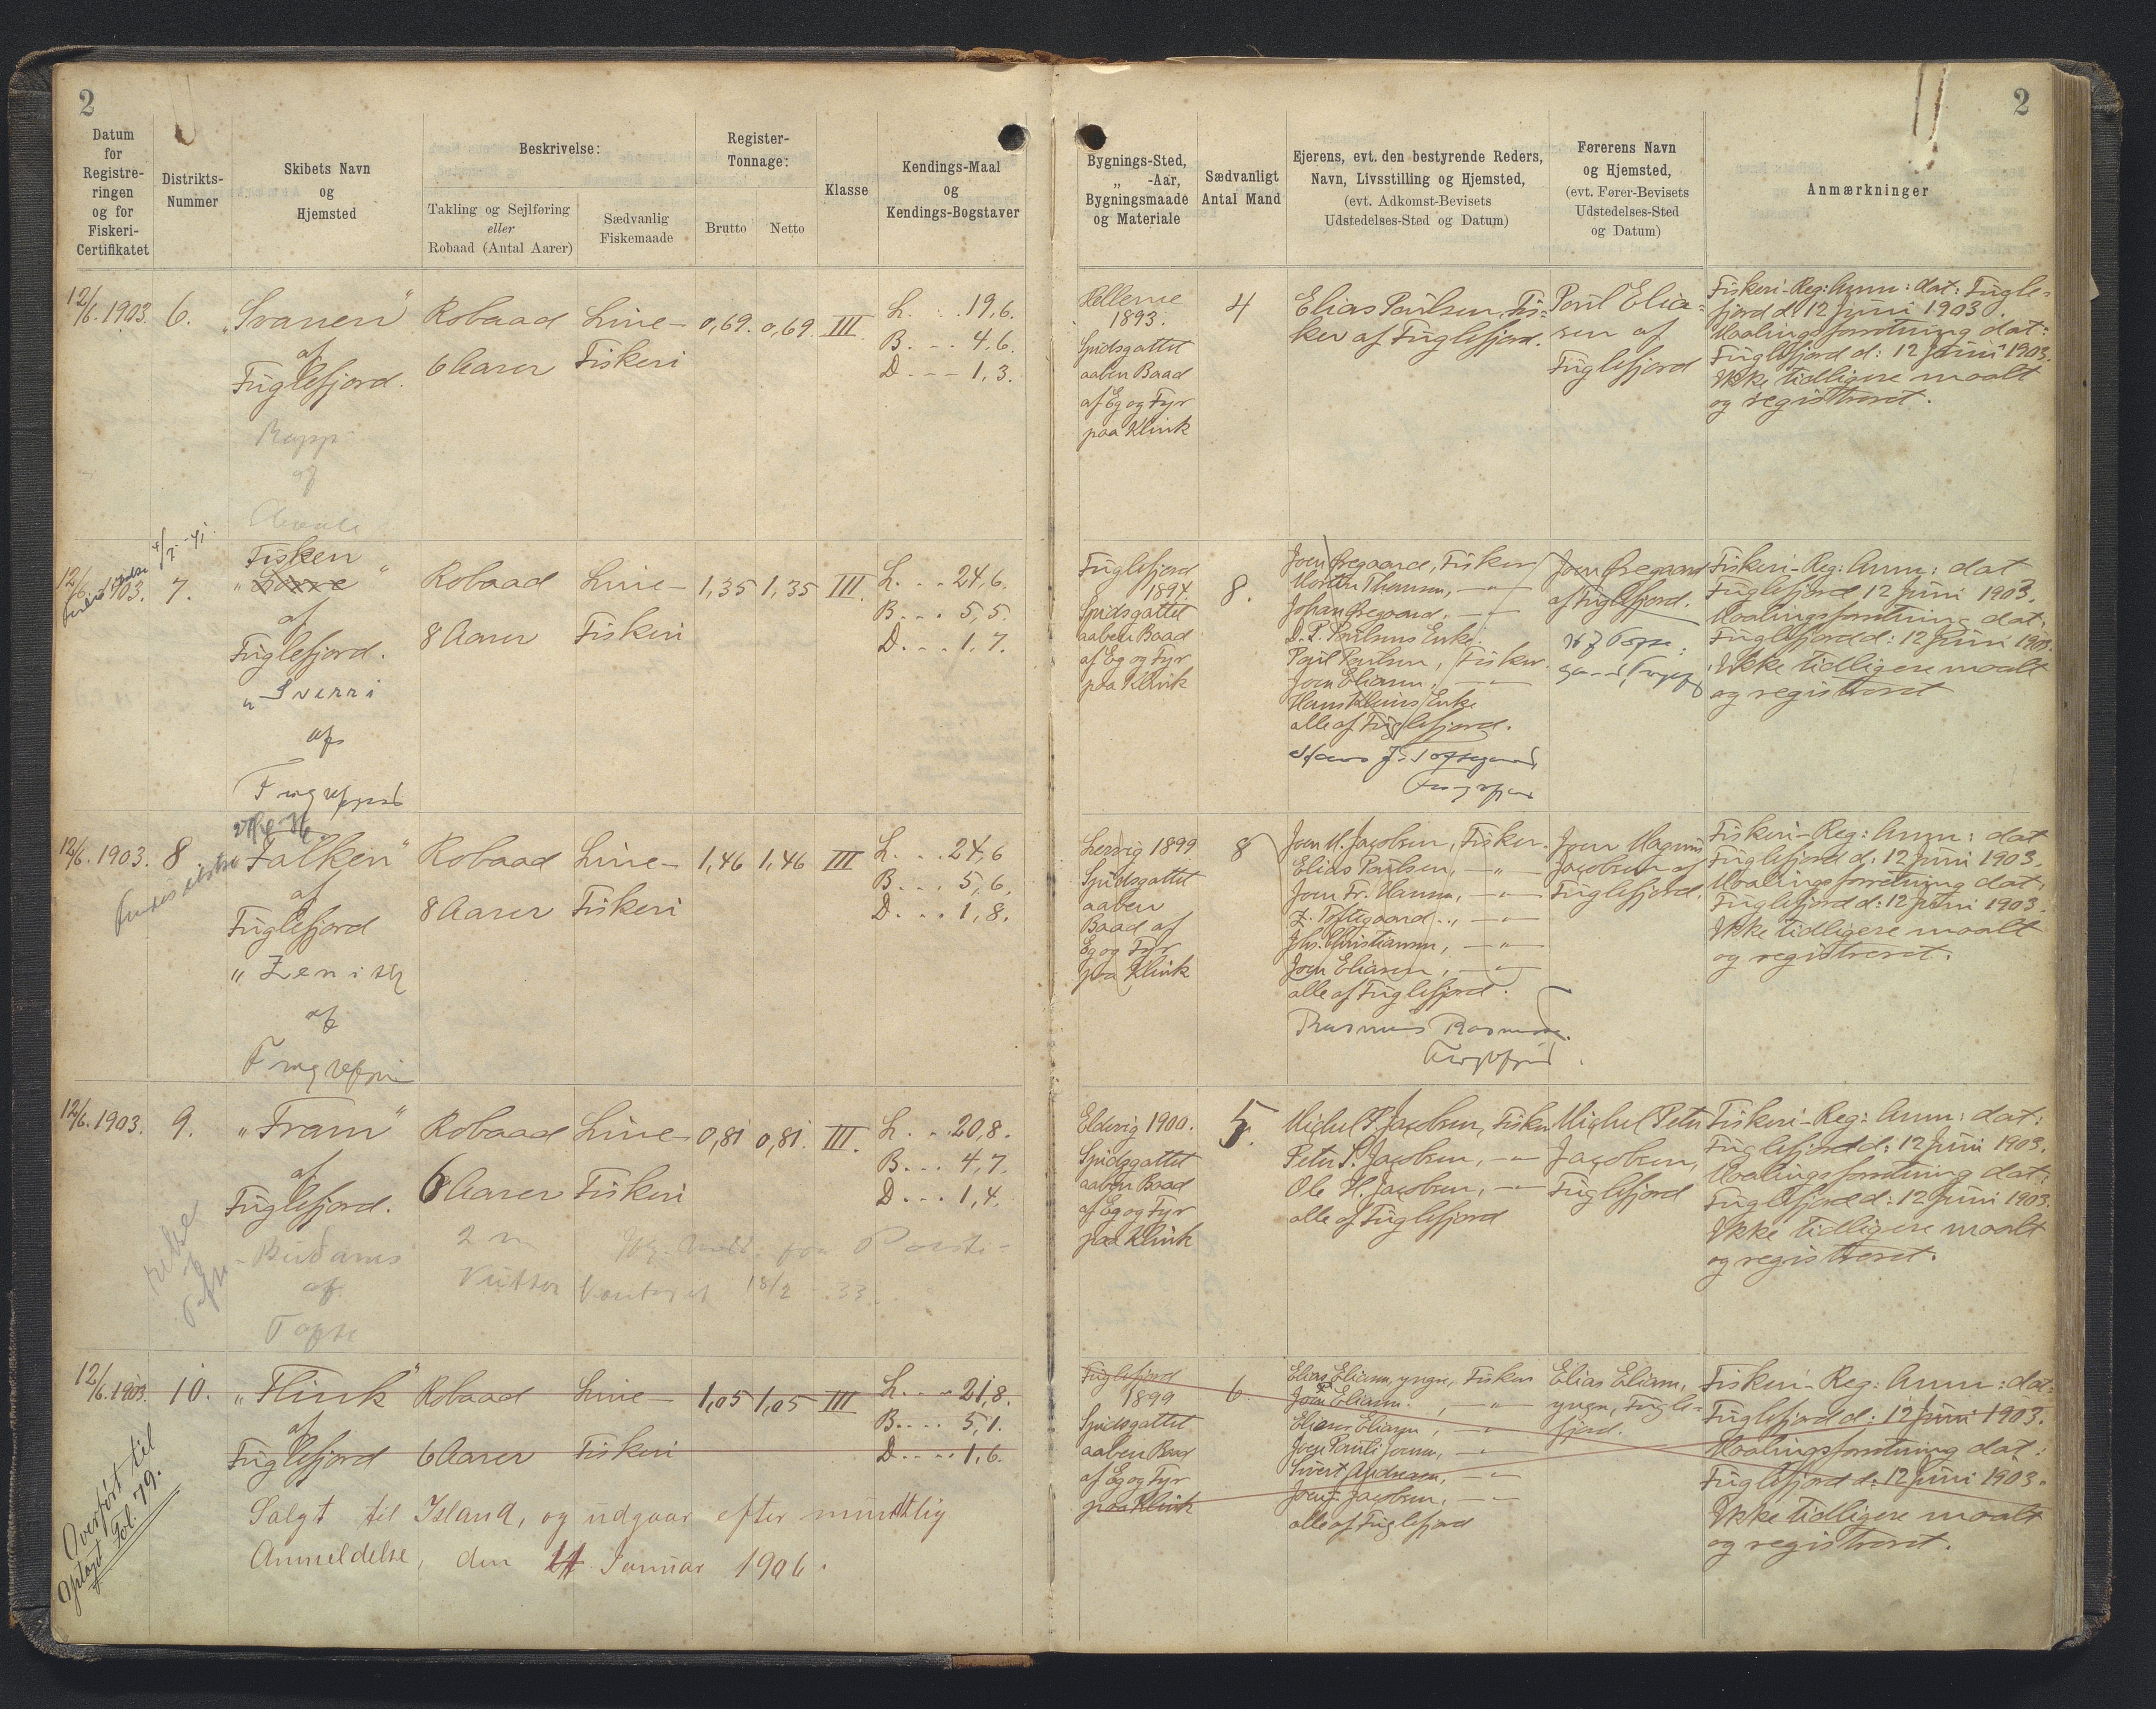 2
2
Datum
for
Registre-
ringen
og for
Fiskeri-
Certifikatet
Distrikts-
Nummer
Skibets Navn
og
Hjemsted
Beskrivelse:
Takling og Sejlføring
eller
Robaad (Antal Aarer)
Sædvanlig
Fiskemaade
Register-
Tonnage:
Brutto
Netto
Klasse
Kendings-Maal
og
Kendings-Bogstaver
Bygnings-Sted,
„ -Aar,
Bygningsmaade
og Materiale
Sædvanligt
Antal Mand
Ejerens, evt. den bestyrende Reders,
Navn, Livsstilling og Hjemsted,
(evt. Adkomst-Bevisets
Udstedelses-Sted og Datum)
Førerens Navn
og Hjemsted,
(evt. Fører-Bevisets
Udstedelses-Sted
og Datum)
Anmærkninger
12/6. 1903.
6.
„Svanen”
af
Fuglefjord.
Rapp
af
Robaad
6 Aarer
Line-
Fiskeri
0,69.
0,69
III.
L. . . 19,6.
B. - - . 4,6.
D. - - - 1,3.
1893.
Spidsgattet
aaben Baad
af Eg og Fyr
paa Klink
4
Elias Poulsen, Fis-
ker af Fuglefjord.
Poul Elia-
sen af
Fuglefjord
Fiskeri-Reg: Anm: dat: Fugle-
fjord d. 12 Juni 1903.
Maalingsforretning dat:
Fuglefjord d: 12 Juni 1903.
Ikke tidligere maalt
og registreret.
12/6. 1903.
7.
Fisken
af
Fuglefjord.
„Sverri
af
Robaad
8 Aarer
Line-
Fiskeri
1,35
1,35
III.
L. . . 24,6.
B. . . . 5,5.
D. . . . 1,7.
Fuglefjord
1894.
Spidsgattet
aaben Baad
af Eg og Fyr
paa Klink
8.
Joen Øregaard, Fisker
Morten Thomsen, — „ —
Johan Øregaard, — „ —
D. P. Poulsens Enke.
Poul Poulsen, Fisker.
Joen Eliasen, — „ —
alle af Fuglefjord.
Joen Øregaard
af Fuglefjord.
Fiskeri-Reg: Anm: dat
Fuglefjord 12 Juni 1903.
Maalingsforretning dat:
Fuglefjord d: 12 Juni 1903.
Ikke tidligere maalt
og registreret
12/6. 1903.
8.
„Falken”
af
Fuglefjord
„Zenith
af
Robaad
8 Aarer
Line-
Fiskeri
1,46
1,46
III
L. . . . 24,6
B. . . . 5,6.
D. . . . 1,8.
Lervig 1899.
Spidsgattet
aaben
Baad af
Eg og Fyr
paa Klink
8
Joen M. Jacobsen, Fisker.
Elias Poulsen, — „ —
Joen Fr. Hansen, — „ —
Z. Toftegaard, — „ —
Jhs. Christiansen, — „ —
Joen Eliasen, — „ —
alle af Fuglefjord.
Rasmus Rasmussen.
Joen Magnus
Jacobsen af
Fuglefjord.
Fiskeri-Reg: Anm: dat
Fuglefjord d: 12 Juni 1903.
Maalingsforretning dat:
Fuglefjord d: 12 Juni 1903.
Ikke tidligere maalt
og registreret.
12/6. 1903.
9.
„Fram”
af
Fuglefjord.
af
Robaad
6 Aarer
Line-
Fiskeri
0,81
0,81.
III.
L. . . 20,8.
B. . . . 4,7.
D. . . . 1,4.
18/2 - 33.
Eldevig 1900.
Spidsgattet
aaben Baad
af Eg og Fyr
paa Klink
5.
Michel P. Jacobsen, Fisker
Peter P. Jacobsen, — „ —
Ole H. Jacobsen, — „ —
alle af Fuglefjord
Michel Peter
Jacobsen,
Fuglefjord
Fiskeri-Reg: Anm: dat:
Fuglefjord d: 12 Juni 1903.
Maalingsforretning dat:
Fuglefjord d: 12 Juni 1903.
Ikke tidligere maalt
og registreret.
12/6. 1903.
10.
„Flink”
af
Fuglefjord
Robaad
6 Aarer
Line-
Fiskeri
1,05
1,05
III
L. . . . 21,8.
B. . . . 5,1.
D. . . . 1,6.
Fuglefjord
1899
Spidsgattet
aaben Baad
af Eg og Fyr
paa Klink
6
Elias Eliasen, yngre, Fisker
Joen Eliasen, — „ —
Elians Eliasen, — „ —
Joen Pauli Joensen, — „ —
Sivert Andreasen, — „ —
Joen J. Jacobsen, — „ —
alle af Fuglefjord
Elias Eliasen,
yngre, Fugle-
fjord.
Fiskeri-Reg: Anm: dat:
Fuglefjord d: 12 Juni 1903.
Maalingsforretning dat:
Fuglefjord d: 12 Juni 1903.
Ikke tidligere maalt
og registreret.
Salgt til Island, og udgaar efter mundtlig
Anmeldelse, den 11 Januar 1906.
Overført til
optaget Fol. 79.